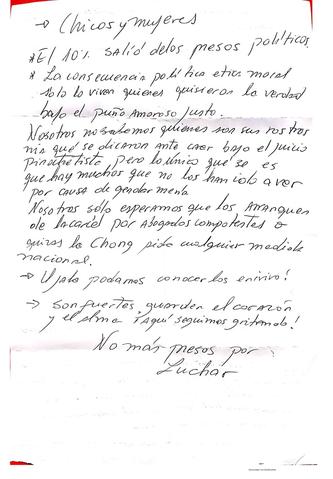 → Chicos y mujeres
* El 10% salió de los presos políticos
* La consecuencia política etica moral
solo lo viven quienes quisieron la verdad
bajo el puño Amoroso justo.
Nosotros no sabemos quienes son sus rostros
ni a que se dicaron ante caer bajo el juicio
pinochetista, pero lo único que se es
que hay muchos que no los han ido a ver
por causa de gendarmería.
Nosotros sólo esperamos que los Arranquen
de la carcel por Abogados competentes o
quizas la Chong pida cualquier medida
nacional.
→ Ujala podamos conocerlos en vivo!
→ Son fuertes, guarden el corazón
y el alma Aquí seguimos gritando!
No más presos por
Luchar